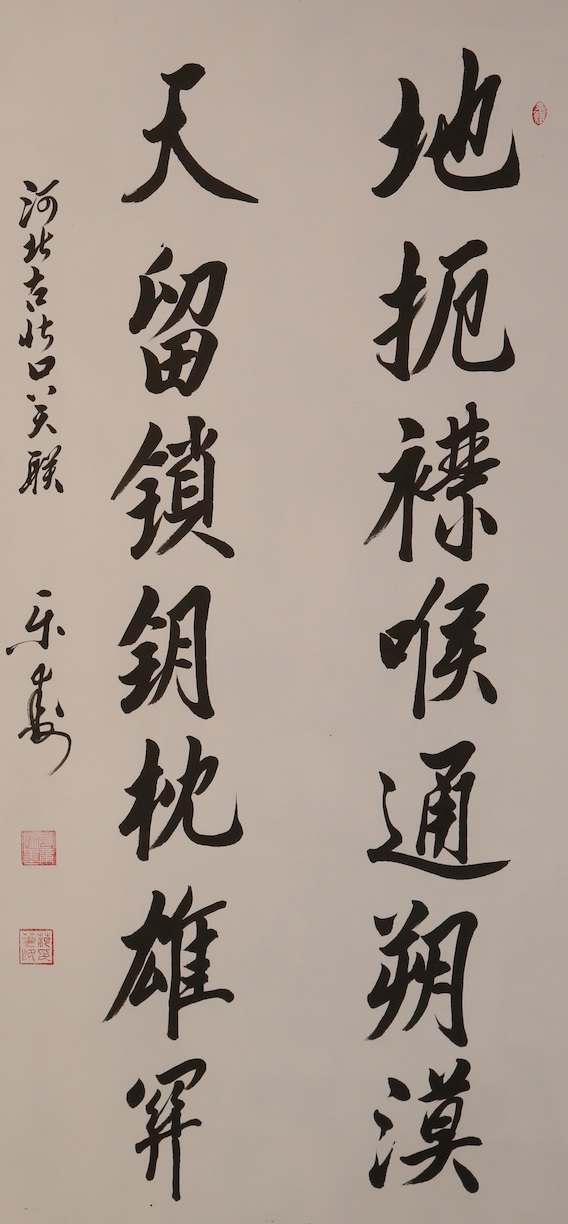 地扼襟喉通朔漠
天留鎖鑰枕雄関
河北古北口关联
乐寿